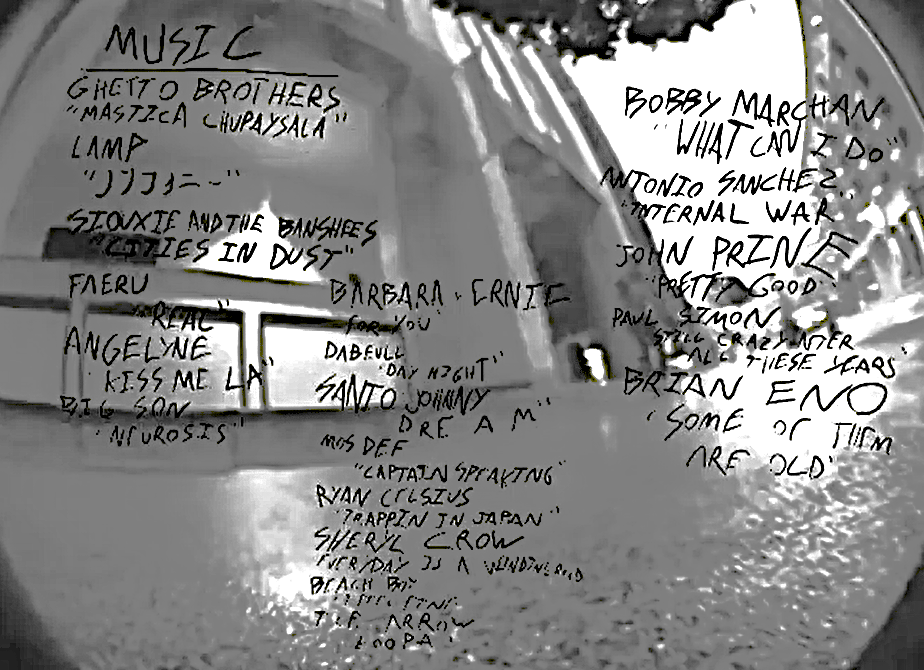 MUSIC
GHETTO BROTHERS
"MASTICA CHUPAYSALA"
LAMP
SIOUXIE AND THE BANSHEES
"CITIES IN DUST"
FAERU
"REAL"
ANGELYNE
"KISS ME LA"
BIG SON
"NEUROSIS"
BARBARA & ERNIE
FOR YOU"
DABEULL
"DAY NIGHT"
SANTO JOHNNY
DREAM"
MOS DEF
"CAPTAIN SPEAKING"
RYAN CELSIUS
"TRAPPIN IN JAPAN"
SHERYL CROW
EVERYDAY IS A
BEACH BOY
ARROW
BOBBY MARCHAN
"WHAT CAN I DO"
ANTONIO SANCHEZ
"INTERNAL WAR
JOHN PRINE
"PRETTY GOOD"
PAUL SIMON
STILL CRAZY AFTER
ALL THESE YEARS"
BRIAN ENO
"SOME OF THEM
ARE OLD"